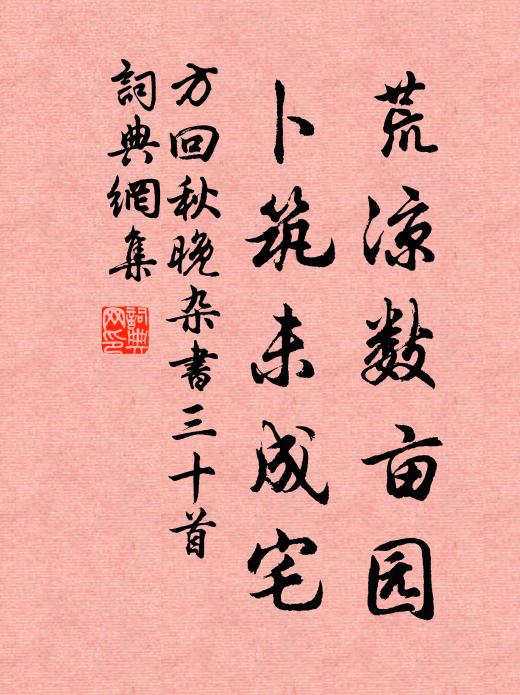 荒凉数亩园
卜筑未成宅
方回秋晚杂书三十首
詞典網集
詞典网印